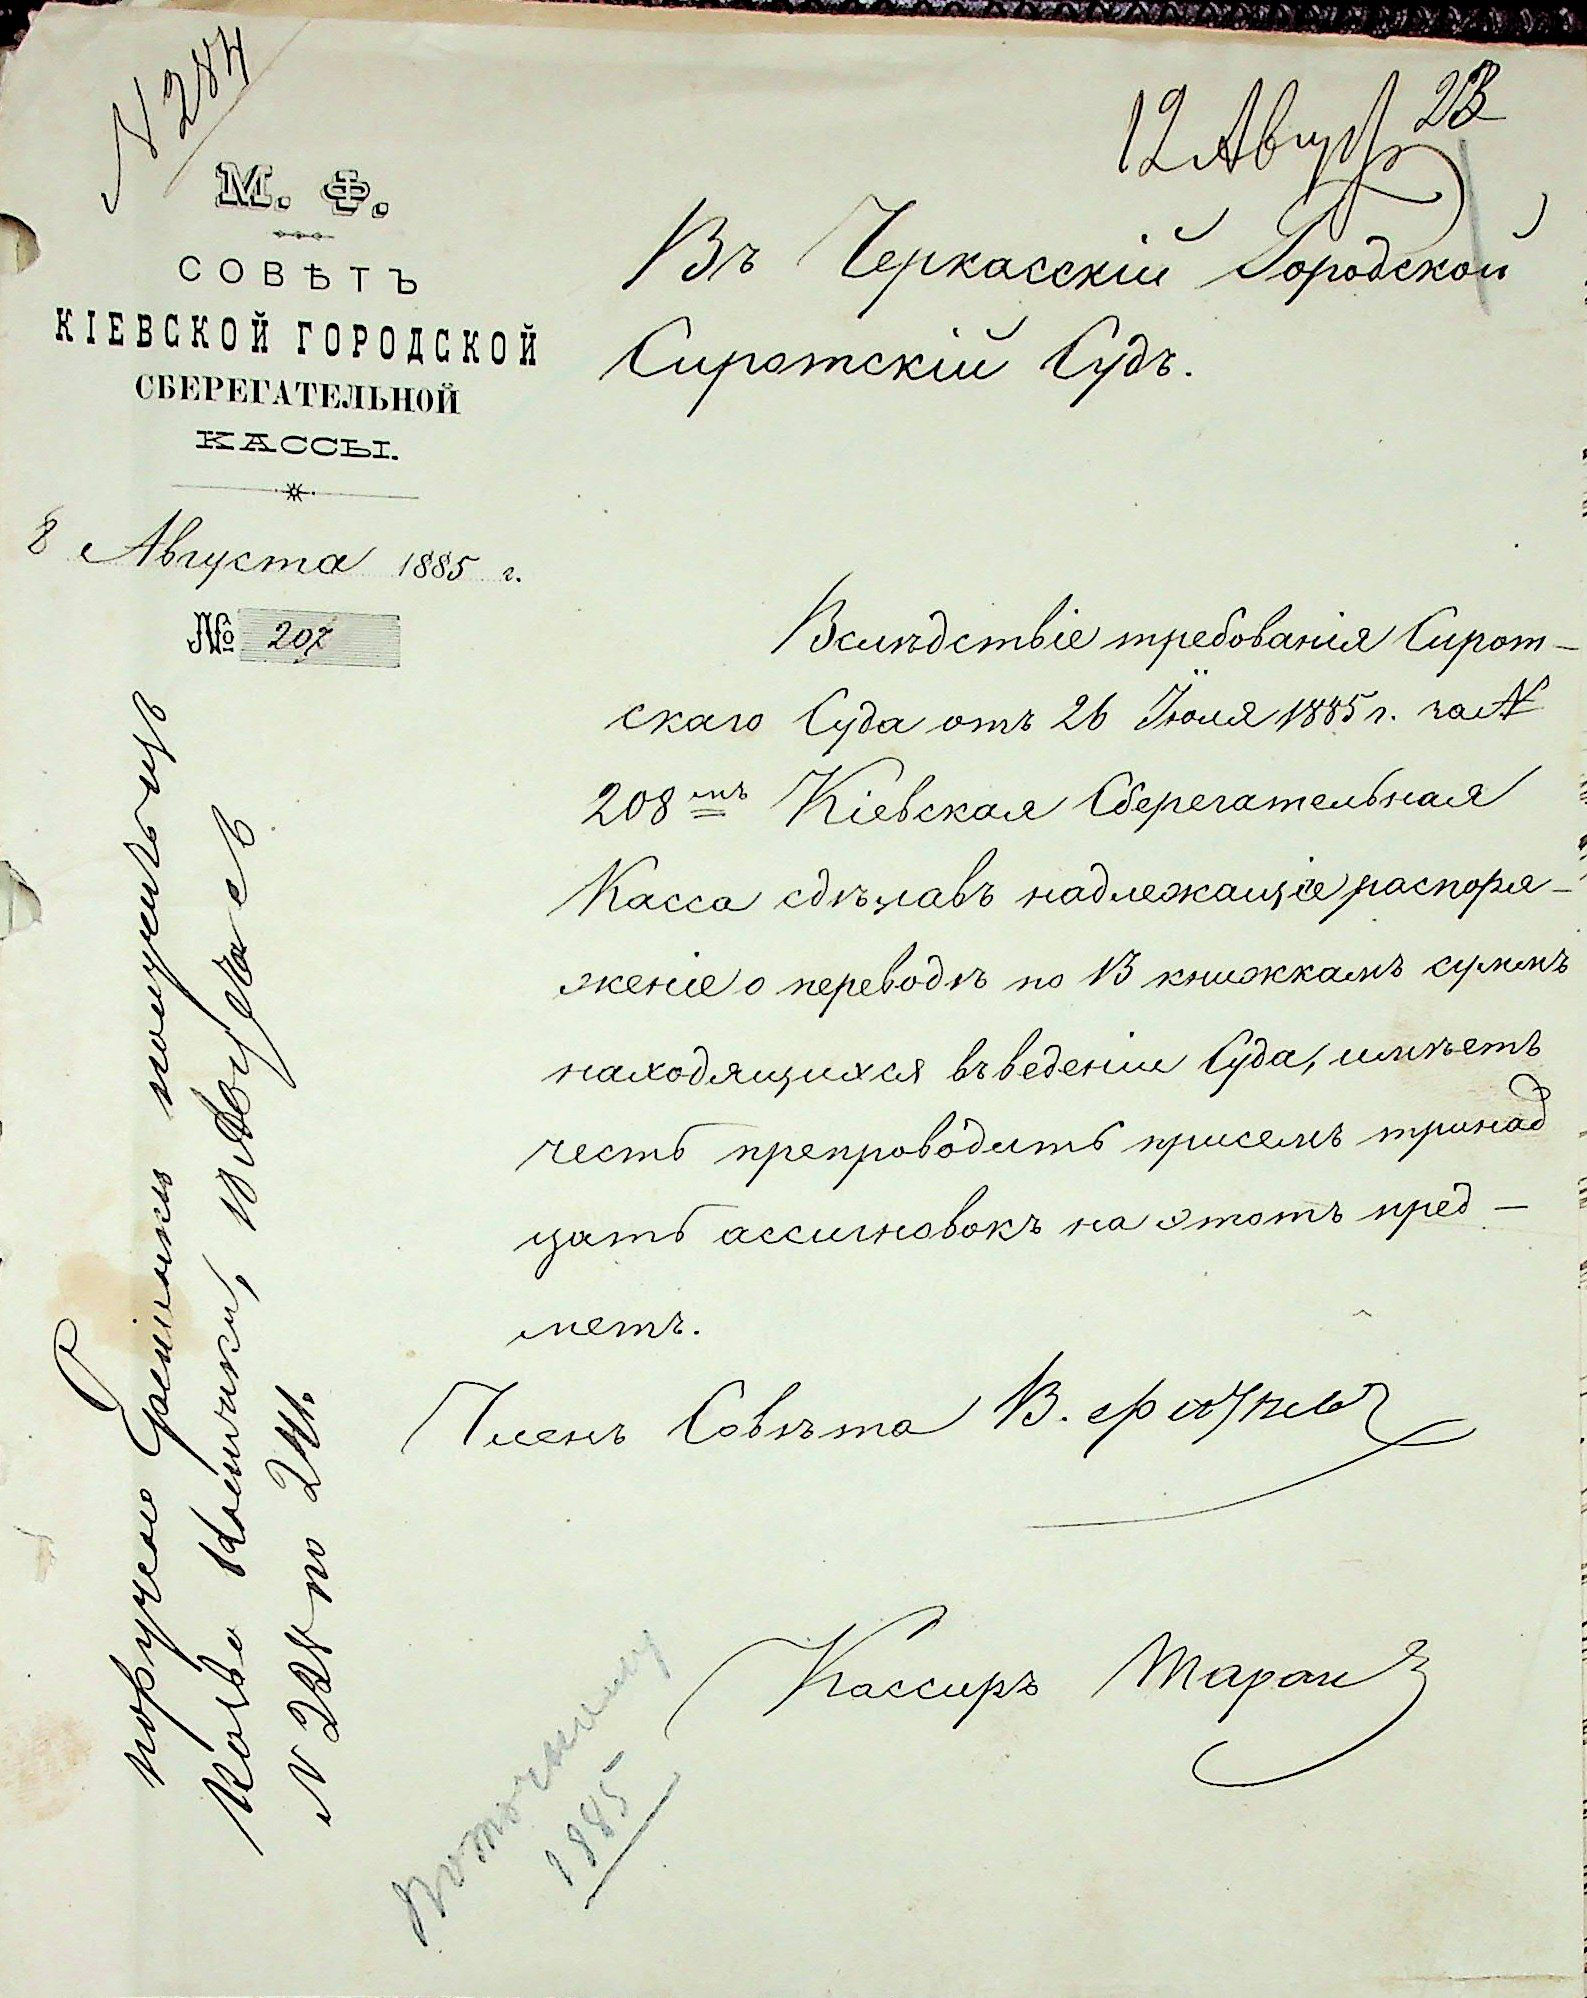 № 284
12 Август
23
М. Ф.
СОВѢТЪ
КІЕВСКОЙ ГОРОДСКОЙ
СБЕРЕГАТЕЛЬНОЙ
КАССЫ.
8 Августа 1885 г.
№ 207
Въ Черкасскій Городской
Сиротскій Судъ.
Вслѣдствіе требованія Сирот-
скаго Суда отъ 26 Іюля 1885 г. за №
208мъ Кіевская Сберегательная
Касса сдѣлавъ надлежащіе распоря-
женіе о переводѣ по 13 книжкамъ суммъ
находящихся въ веденіи Суда, имѣетъ
честь препроводить присемъ тринад
цать ассигновокъ на этотъ пред-
метъ.
Членъ Совѣта В.
Кассиръ Таран
поручено получить изъ
Кіева книжки, 13 Августа
№ по 241.
1885